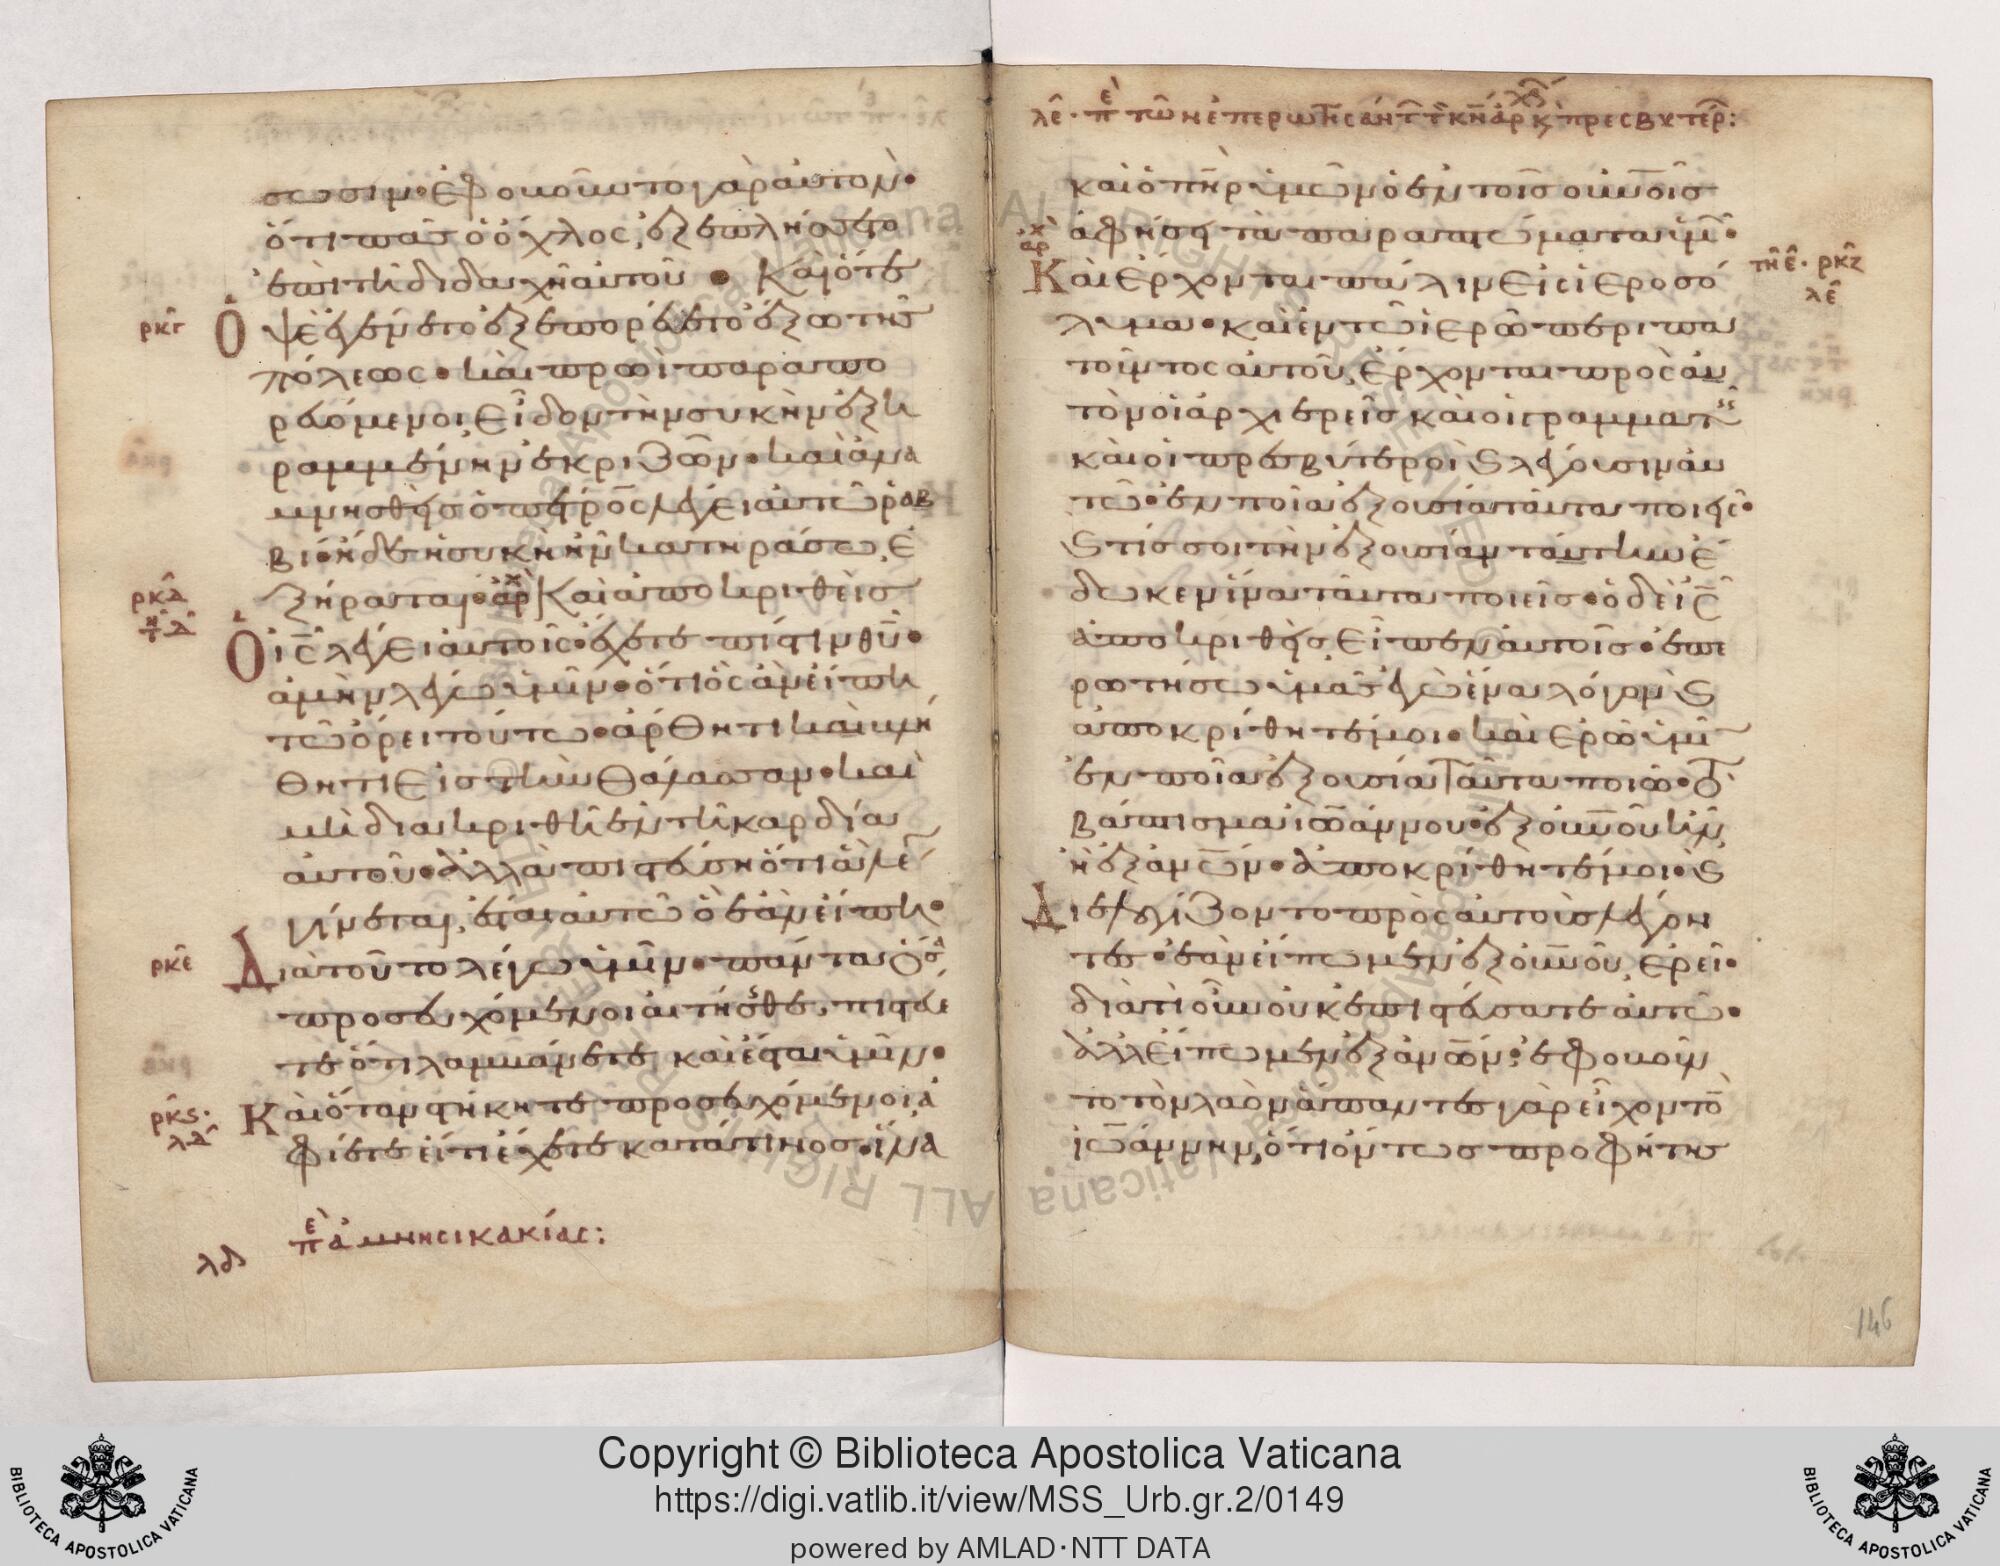 σωσιν· ἐφοβοῦντο γὰρ αὐτὸν·
ὅτι πᾶς ὁ ὄχλος, ἐξεπλήσσετο
ἐπὶ τῆ διδαχῆ αὐτοῦ · Καὶ ὅτε
ρκγ Ὀψὲ ἐγένετο ἐξεπορεύετο ἔξω τῆς
πόλεως · καὶ πρωῒ παραπο
ρευόμενοι, εἶδον τὴν συκὴν ἐξη
ραμμένην ἐκ ριζῶν · καὶ ἀνα
μνησθεὶς ὁ πέτρος λέγει αὐτῶ ραβ
βί· ἴδε ἡ συκῆ ἣν κατηράσω, ἐ
ξήρανται· ἀρχ Καὶ ἀποκριθεὶς
ρκδ
Ὁ ις λέγει αὐτοῖς· ἔχετε πίστιν θυ·
ἀμὴν λέγω ὑμῖν· ὅτι ὃς ἂν εἴπη
τῶ ὄρει τούτω· ἄρθητι καὶ βλή
θητι εἰς τὴν θάλασσαν · καὶ
μὴ διακριθῆ ἐν τῆ καρδία
αὐτοῦ· ἀλλὰ πιστεύση ὅτι ἃ λέγει
γίνεται, ἔσται αὐτῶ ὃ ἐὰν εἴπη·
ρκε Διὰ τοῦτο λέγω ὑμῖν · πάντα ὅσα
προσευχόμενοι αἰτῆσθε, πιστεύε
τε ὅτι λαμβάνετε, καὶ ἔσται ὑμῖν·
ρκϛ· Καὶ ὅταν στήκητε προσευχόμενοι ἀ
λδ φίετε εἴ τι ἔχετε κατά τινος· ἵνα
λδ πε ἀμνησικακίας:
λε · πε τῶν ἐπερωτησάντ τ κν ἀρχ κ πρεσβυτερ:
καὶ ὁ πηρ ὑμῶν ὁ ἐν τοῖς οὐνοῖς
ἀφήση τὰ παραπτώματα ὑμ·
ἀρχ
Καὶ ἔρχονται πάλιν εἰς ἱεροσό
ρκζ
λε
λυμα · καὶ ἐν τῶ ἱερῶ περιπα
τοῦντος αὐτοῦ, ἔρχονται πρὸς αὐ
τὸν οἱ ἀρχιερεῖς καὶ οἱ γραμματεῖς
καὶ οἱ πρεσβύτεροι ϗ λέγουσιν αὐ
τῶ· ἐν ποία ἐξουσία ταῦτα ποιεῖς·
ϗ τίς σοι τὴν ἐξουσίαν ταύτην ἔ
δωκεν ἵνα ταῦτα ποιεῖς· ὁ δὲ ις
ἀποκριθεὶς, εἶπεν αὐτοῖς · ἐπε
ρωτήσω ὑμᾶς ἐγὼ ἕνα λόγον ϗ
ἀποκρίθητέ μοι · καὶ ἐρῶ ὑμῖν
ἐν ποία ἐξουσία ταῦτα ποιῶ· τὸ
βάπτισμα ἰωάννου · ἐξ οὐνοῦ ἦν,
ἢ ἐξ ἀνων· ἀποκρίθητέ μοι· ϗ
Διελογίζοντο πρὸς αὐτοὺς λέγον
τες · ἐὰν εἴπωμεν ἐξ οὐνοῦ, ἐρεῖ·
διὰ τί οὖν οὐκ ἐπιστεύσατε αὐτῶ·
ἀλλ εἴπωμεν ἐξ ἀνων; ἐφοβοῦν
το τὸν λαὸν ἅπαντες γὰρ εἶχον τὸν
ἰωάννην, ὅτι ὄντως προφήτης
146
Copyright © Biblioteca Apostolica Vaticana
https://digi.vatlib.it/view/MSS_Urb.gr.2/0149
powered by AMLAD·NTT DATA
BIBLIOTECA APOSTOLICA VATICANA
BIBLIOTECA APOSTOLICA VATICANA